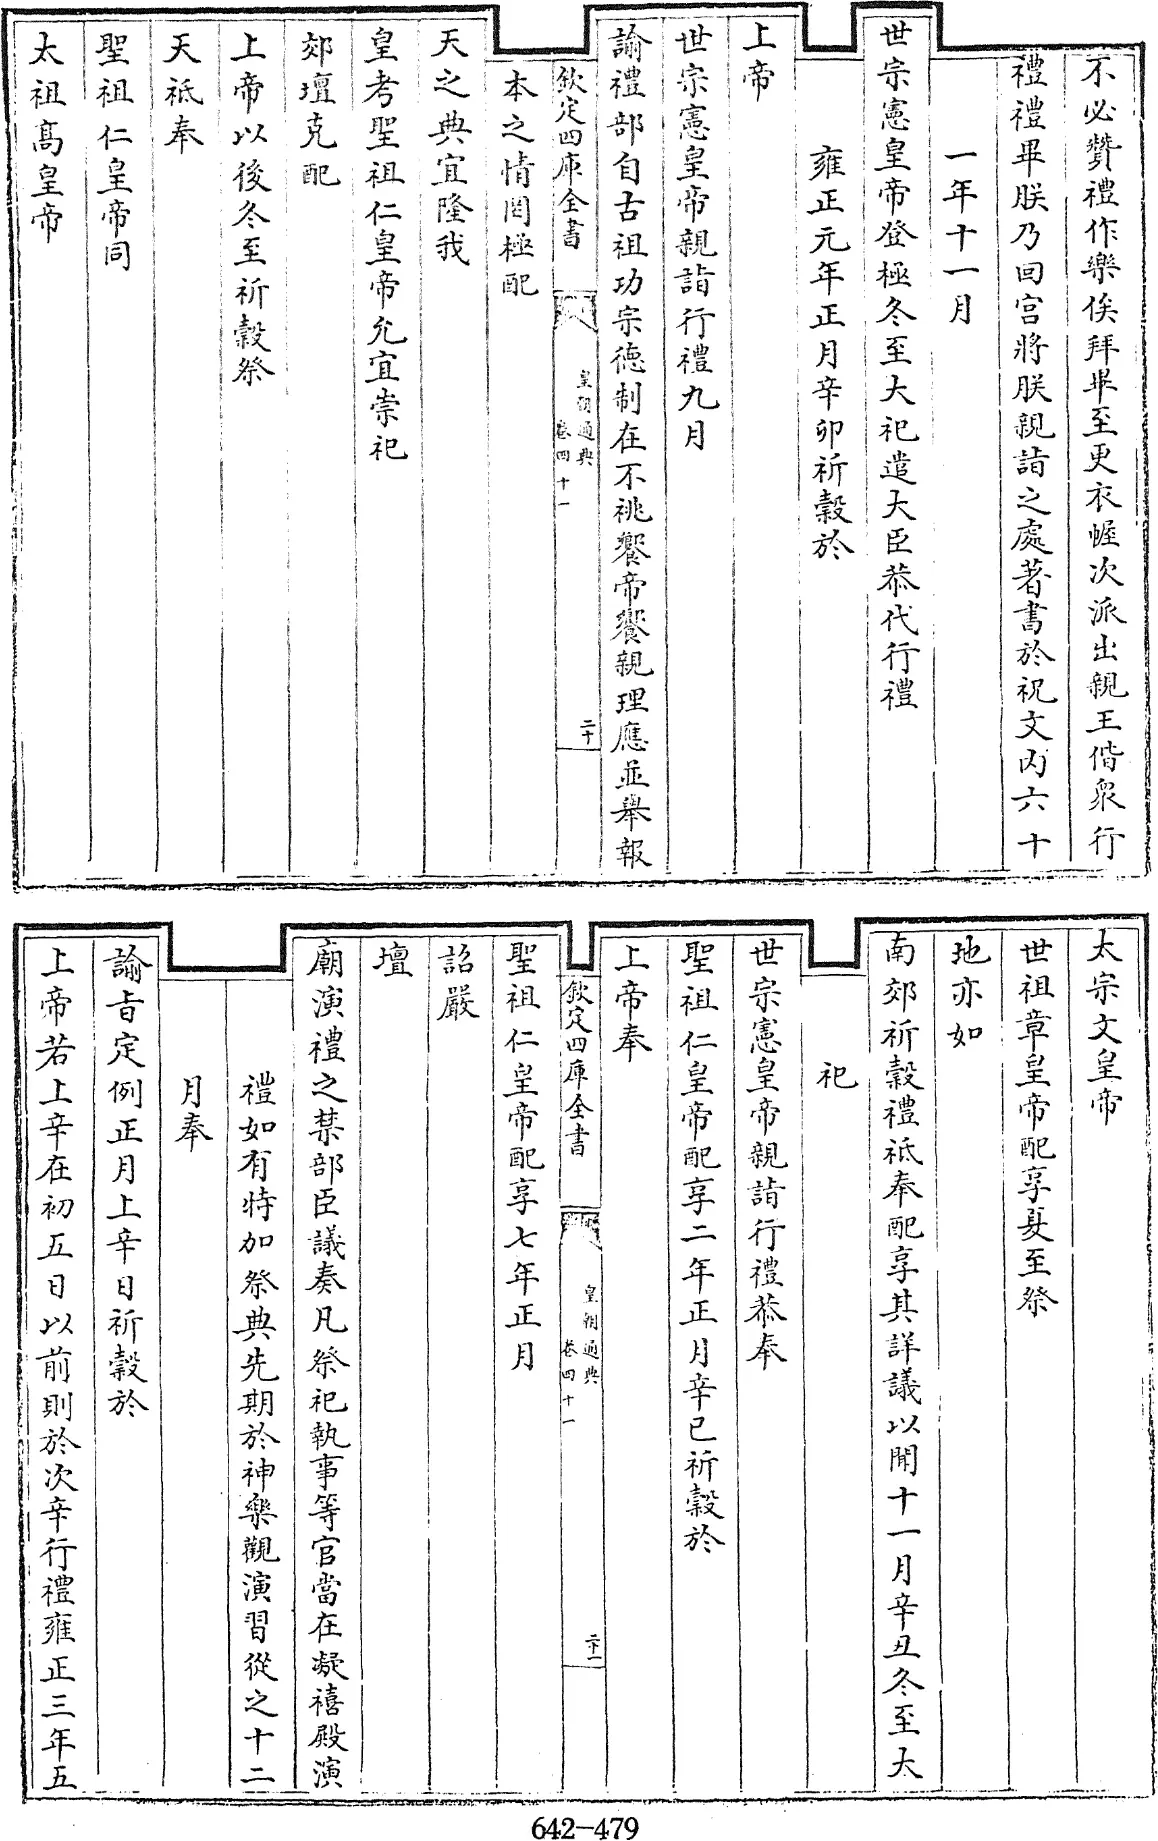 不必贊禮作樂俟拜畢至更衣幄次派出親王偕衆行
禮禮畢朕乃回宮將朕親詣之處著書於祝文內六十
一年十一月
世宗憲皇帝登極冬至大祀遣大臣恭代行禮
雍正元年正月辛卯祈穀於
上帝
世宗憲皇帝親詣行禮九月
諭禮部自古祖功宗德制在不祧饗帝饗親理應並舉報
欽定四庫全書
皇朝通典
卷四十一
二十
本之情罔極配
天之典宜隆我
皇考聖祖仁皇帝允宜崇祀
郊壇克配
上帝以後冬至祈穀祭
天祗奉
聖祖仁皇帝同
太祖高皇帝
太宗文皇帝
世祖章皇帝配享夏至祭
地亦如
南郊祈穀禮祗奉配享其詳議以聞十一月辛丑冬至大
祀
世宗憲皇帝親詣行禮恭奉
聖祖仁皇帝配享二年正月辛巳祈穀於
上帝奉
欽定四庫全書
皇朝通典
卷四十一
二十一
聖祖仁皇帝配享七年正月
詔嚴
壇
廟演禮之禁部臣議奏凡祭祀執事等官當在凝禧殿演
禮如有特加祭典先期於神樂觀演習從之十二
月奉
諭旨定例正月上辛日祈穀於
上帝若上辛在初五日以前則於次辛行禮雍正三年五
642-479